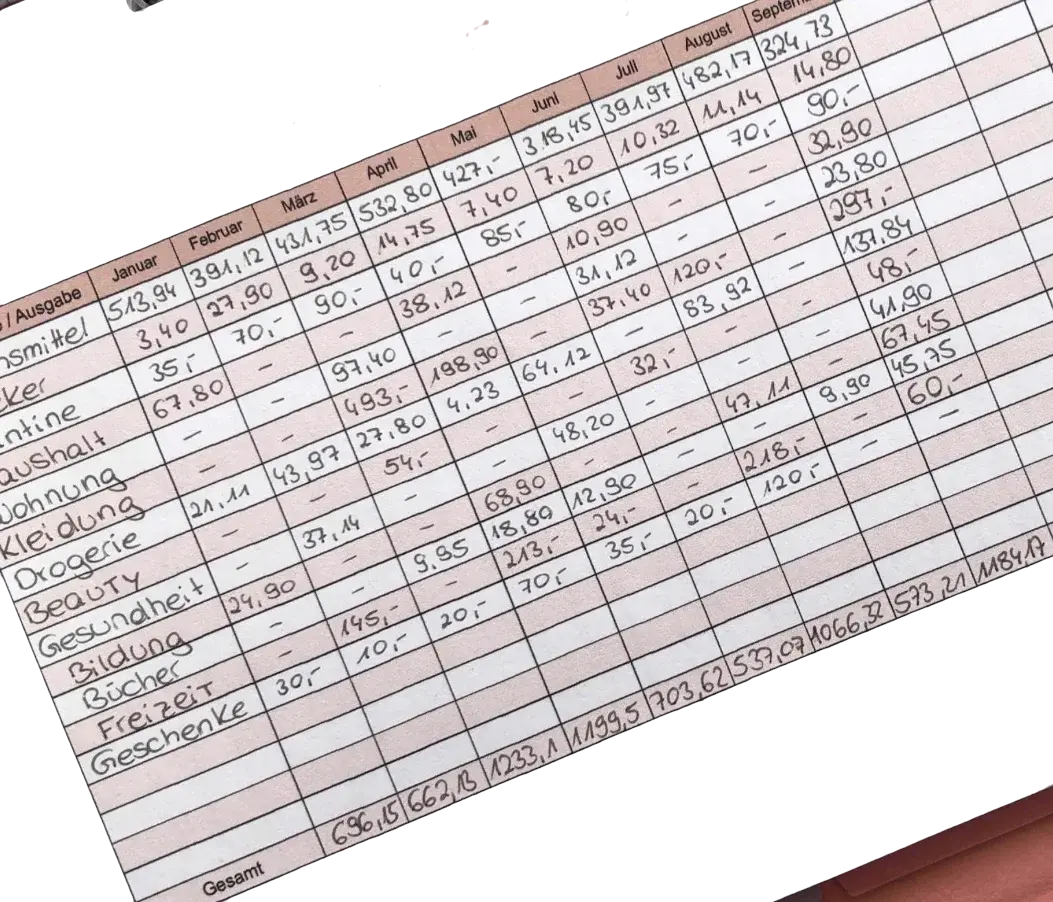 / Ausgabe Januar Februar März April Mai Juni Juli August
nsmittel 513,94 391,12 431,75 532,80 427,- 318,45 391,97 482,17 324,73
ker 3,40 27,90 9,20 14,75 7,40 7,20 10,32 11,14 14,80
ntine 35,- 70,- 90,- 40,- 85,- 80,- 75,- 70,- 90,-
aushalt 67,80 - - 38,12 - 10,90 - - 32,90
Wohnung - - 97,40 - - 31,12 - - 23,80
Kleidung - - 493,- 198,90 - 37,40 120,- - 297,-
Drogerie 21,11 43,97 27,80 4,23 64,12 - 83,92 - 137,84
BeauTy - - 54,- - - 32,- - - 48,-
Gesundheit - 37,14 - - 48,20 - - - 41,90
Bildung 24,90 - - 68,90 - - 47,11 - 67,45
Bücher - - 9,95 18,80 12,90 - - 9,90 45,75
Freizeit - 145,- - 213,- 24,- - 218,- - 60,-
Geschenke 30,- 10,- 20,- 70,- 35,- 20,- 120,- - -
Gesamt 696,15 662,13 1233,1 1199,5 703,62 537,07 1066,32 573,21 1184,17